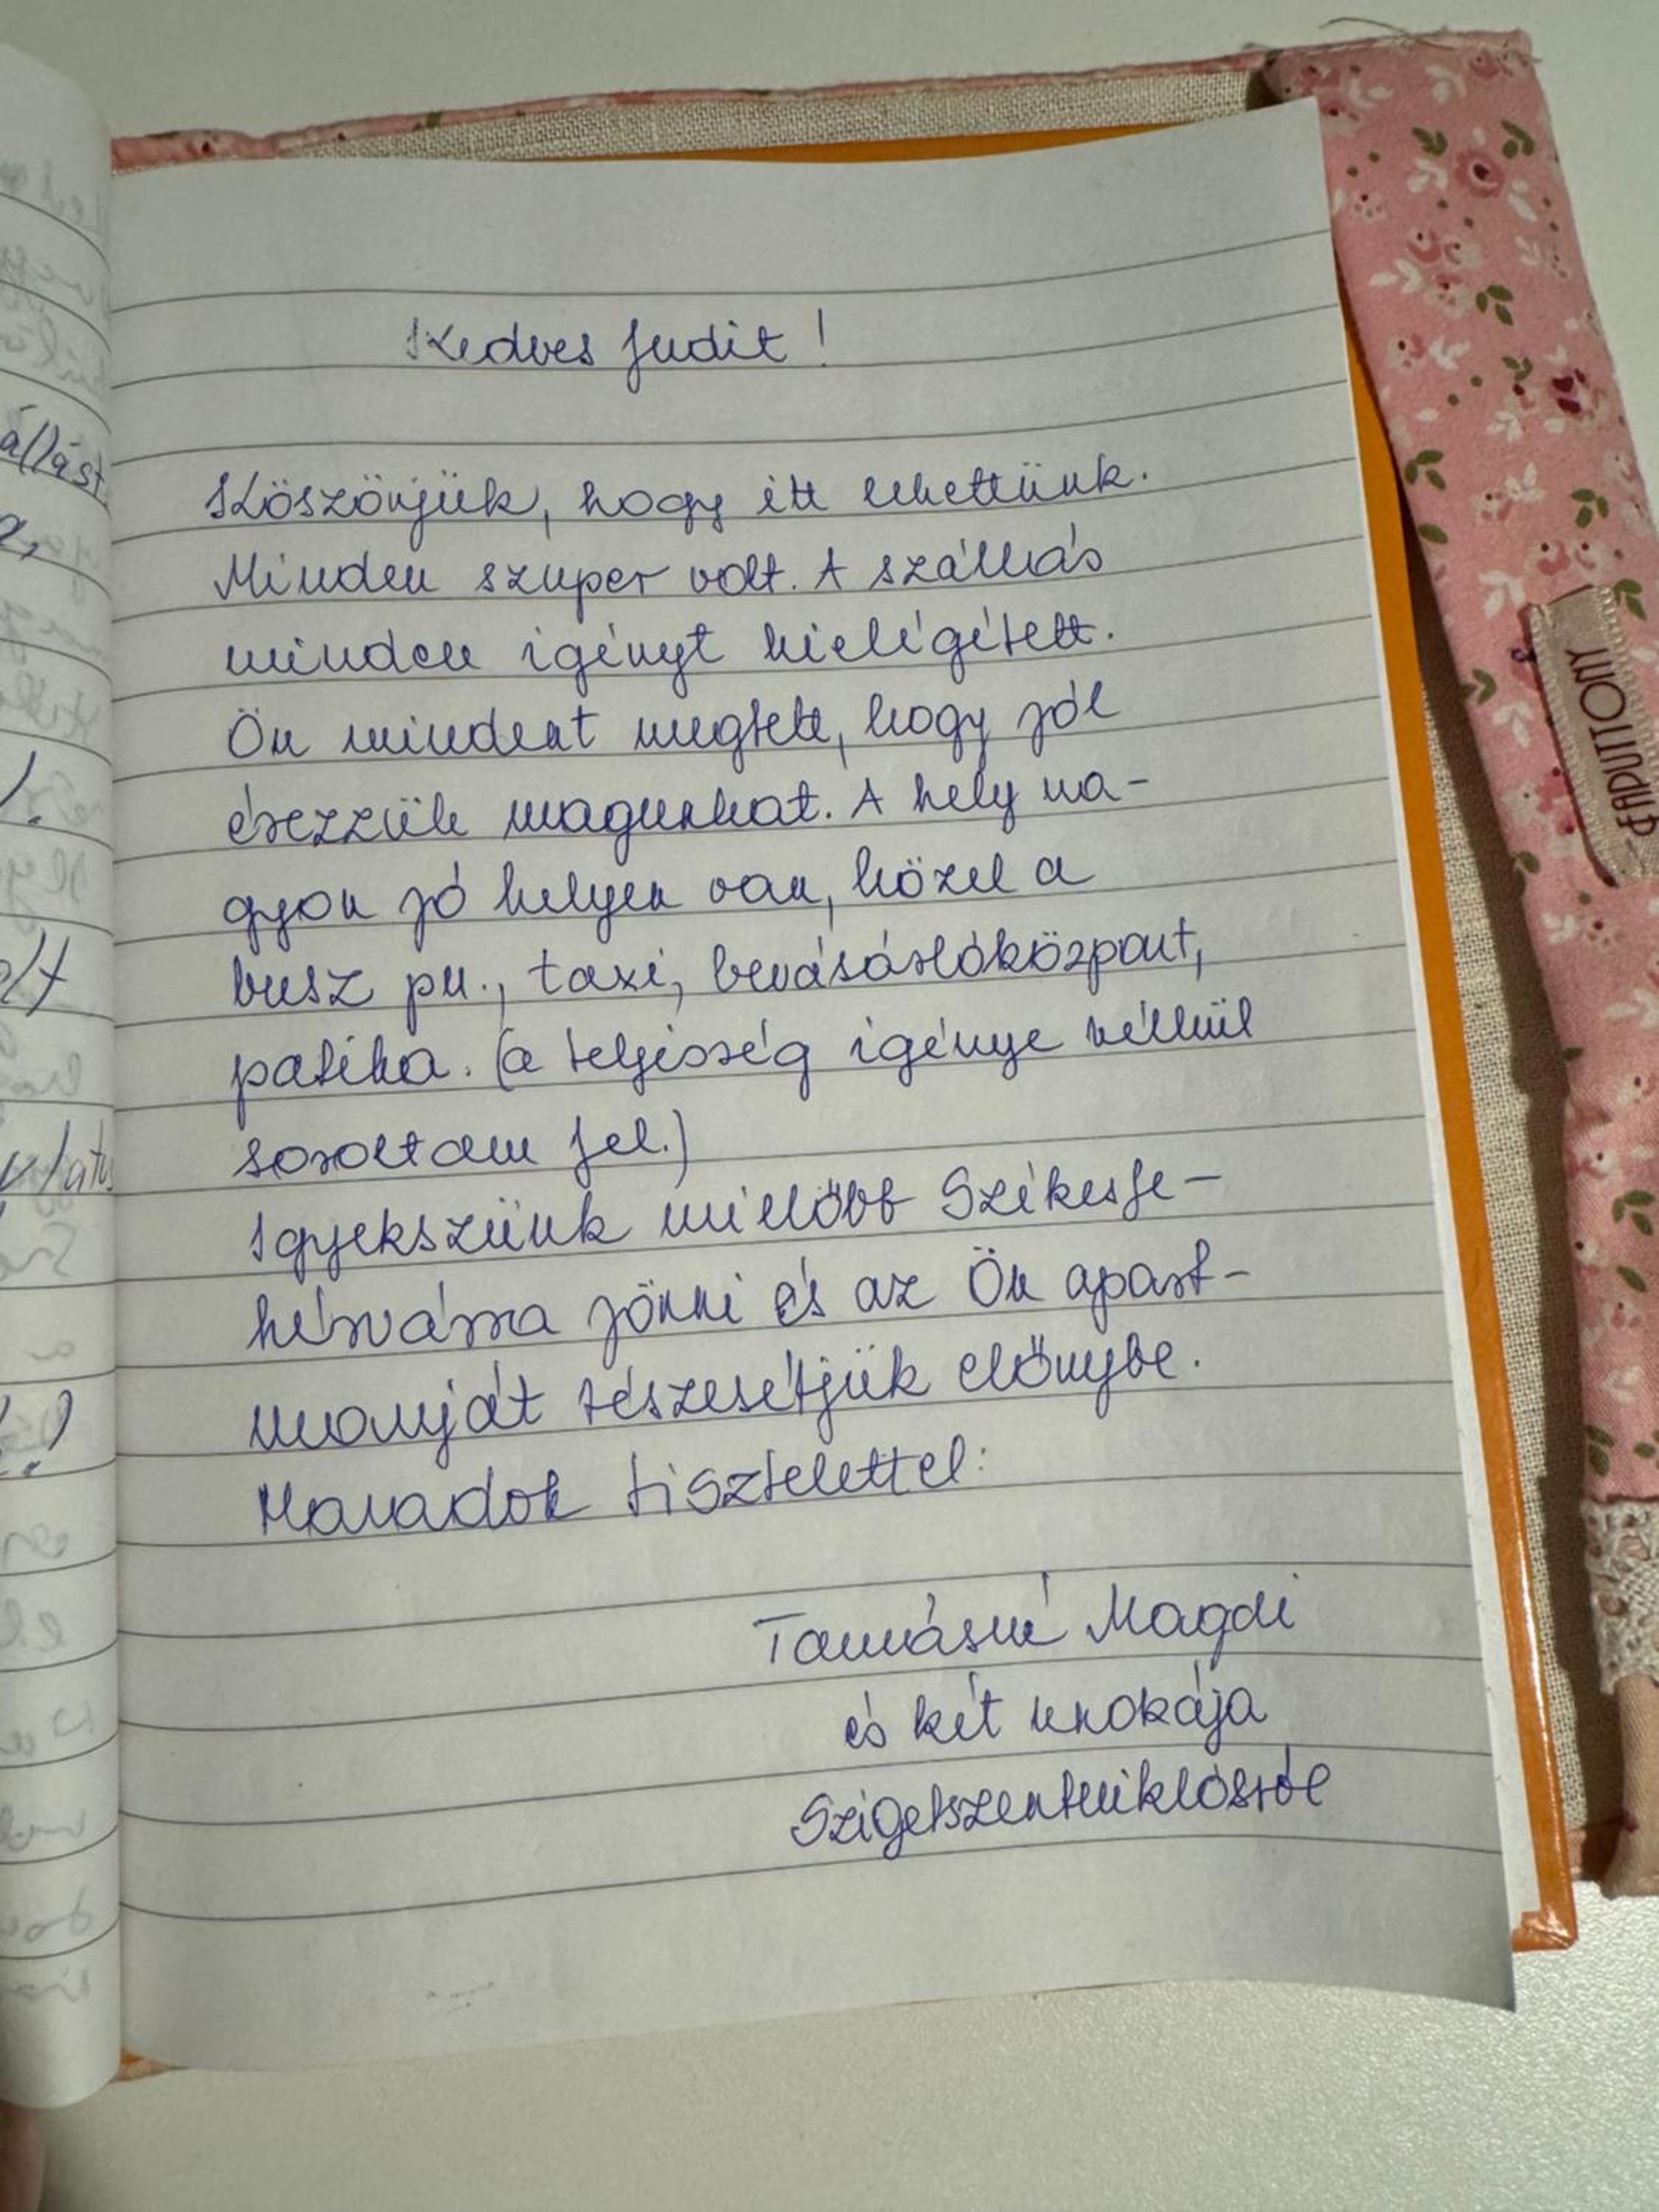 Kedves Judit!
Köszönjük, hogy itt lehettünk.
Minden szuper volt. A szállás
minden igényt kielégített.
Ön mindent megtett, hogy jól
érezzük magunkat. A hely na-
gyon jó helyen van, közel a
busz pu., taxi, bevásárlóközpont,
patika. (a teljesség igénye nélkül
soroltam fel.)
Igyekszünk mielőbb Székesfe-
hérvárra jönni és az Ön apart-
monyját részesítjük előnybe.
Maradok tisztelettel:
Tamásné Magdi
és két unokája
Szigetszentmiklósról
állást
a,
FAPUTTONY